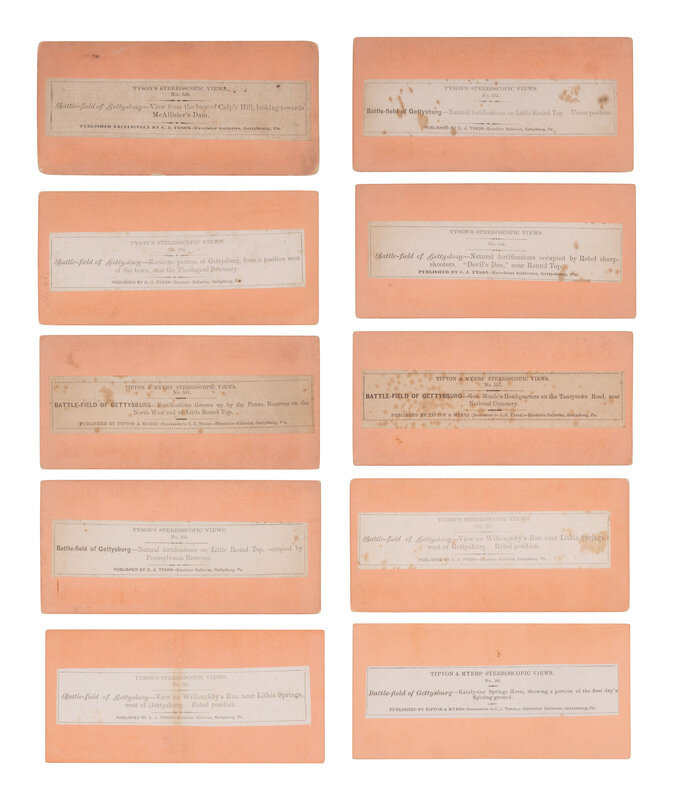 TYSON'S STEREOSCOPIC VIEWS.
No.
Battle-field of Gettysburg—View from the base of Culp's Hill, looking towards
McAllister's Dam.
PUBLISHED EXCLUSIVELY BY C. J. TYSON—Excelsior Galleries, Gettysburg, Pa.
TYSON'S STEREOSCOPIC VIEWS.
No.
Battle-field of Gettysburg—Natural fortifications on Little Round Top. Union position.
PUBLISHED BY C. J. TYSON—Excelsior Galleries, Gettysburg, Pa.
TYSON'S STEREOSCOPIC VIEWS.
No.
Battle-field of Gettysburg—Northern portion of Gettysburg, from a position west
of the town, near the Theological Seminary
PUBLISHED BY C. J. TYSON—Excelsior Galleries, Gettysburg, Pa.
TYSON'S STEREOSCOPIC VIEWS.
No.
Battle-field of Gettysburg—Natural fortifications occupied by Rebel sharp-
shooters. "Devil's Den," near Round Top.
PUBLISHED BY C. J. TYSON—Excelsior Galleries, Gettysburg, Pa.
TIPTON & MYERS' STEREOSCOPIC VIEWS.
No.
BATTLE-FIELD OF GETTYSBURG—Fortifications thrown up by the Penna. Reserves on the
North-West end of Little Round Top.
PUBLISHED BY TIPTON & MYERS (Successors to C. J. Tyson)—Excelsior Galleries, Gettysburg, Pa.
TIPTON & MYERS' STEREOSCOPIC VIEWS.
No.
BATTLE-FIELD OF GETTYSBURG—Gen. Meade's Headquarters on the Taneytown Road, near
National Cemetery.
PUBLISHED BY TIPTON & MYERS (Successors to C. J. Tyson)—Excelsior Galleries, Gettysburg, Pa.
TYSON'S STEREOSCOPIC VIEWS.
No.
Battle-field of Gettysburg—Natural fortifications on Little Round Top, occupied by
Pennsylvania Reserves.
PUBLISHED BY C. J. TYSON—Excelsior Galleries, Gettysburg, Pa.
TYSON'S STEREOSCOPIC VIEWS
No.
Battle-field of Gettysburg—View on Willoughby's Run near Lithia Springs,
west of Gettysburg. Rebel position.
PUBLISHED BY C. J. TYSON—Excelsior Galleries, Gettysburg, Pa.
TYSON'S STEREOSCOPIC VIEWS.
No.
Battle-field of Gettysburg—View on Willoughby's Run near Lithia Springs,
west of Gettysburg. Rebel position.
PUBLISHED BY C. J. TYSON—Excelsior Galleries, Gettysburg, Pa.
TIPTON & MYERS' STEREOSCOPIC VIEWS.
No.
Battle-field of Gettysburg—Katalysine Springs Hotel, showing a portion of the first day's
fighting ground.
PUBLISHED BY TIPTON & MYERS (Successors to C. J. Tyson,)—Excelsior Galleries, Gettysburg, Pa.